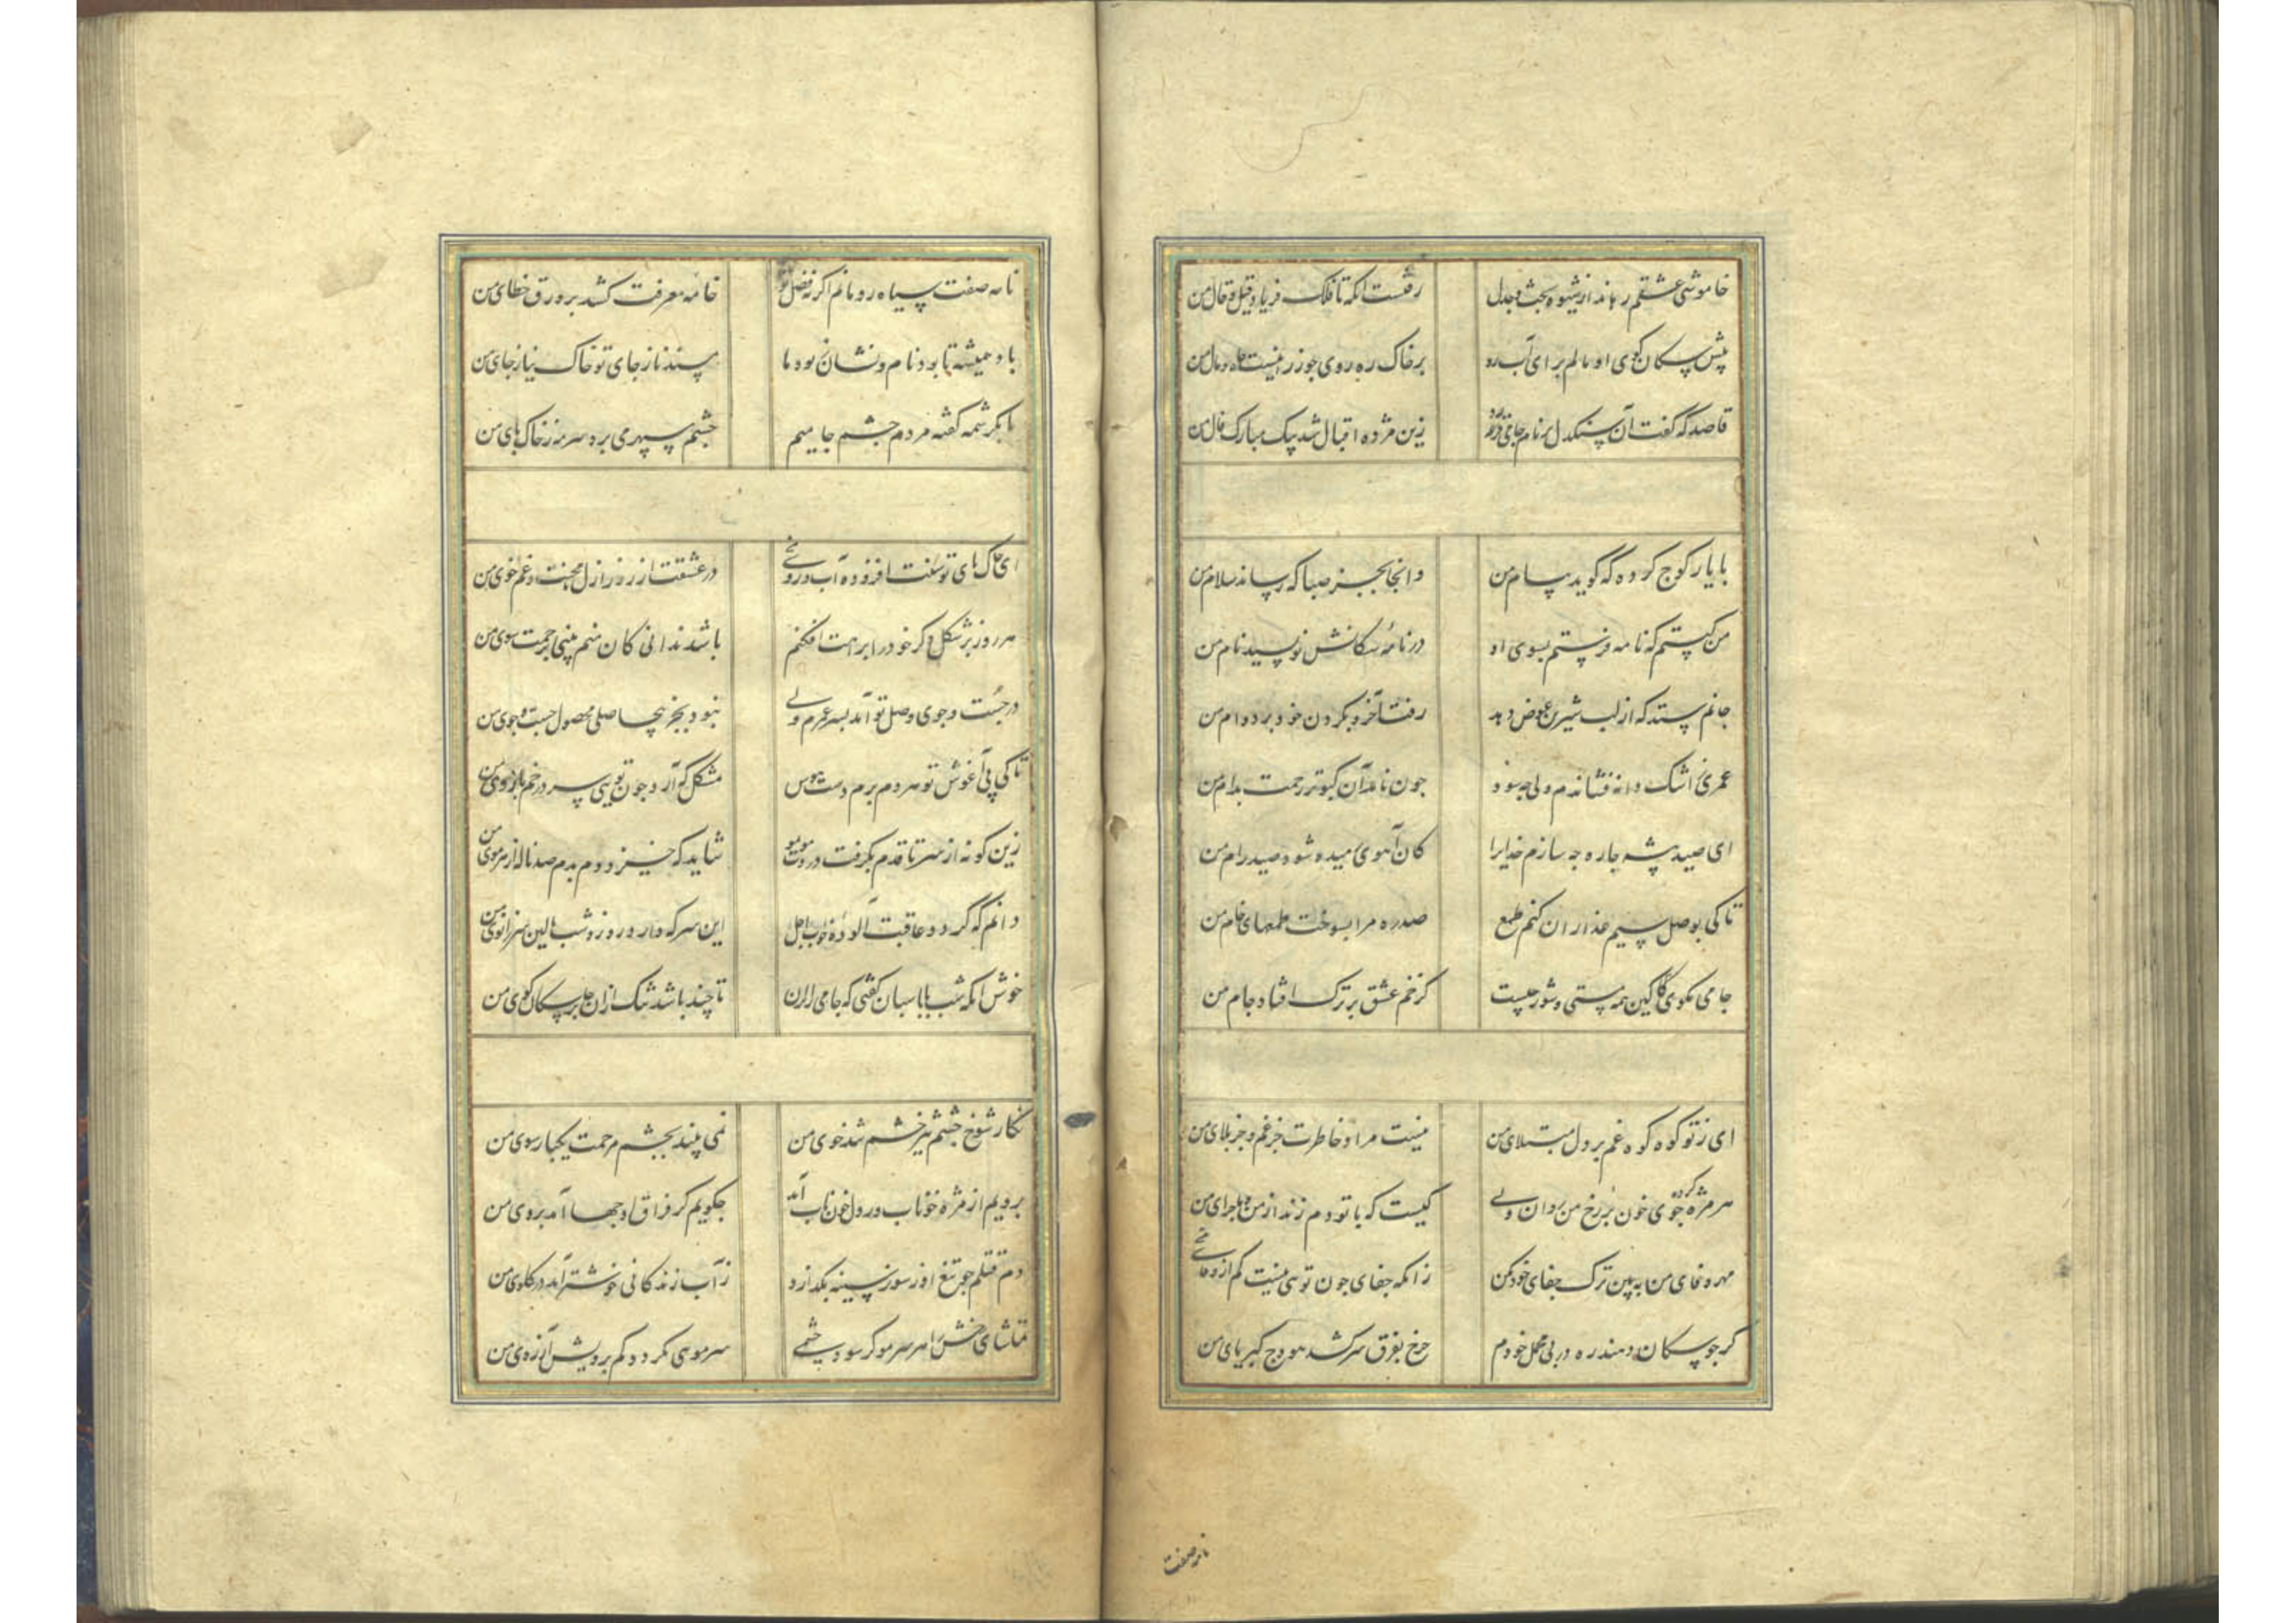 خاموشی عشقم رهاند از شیوه بحث و جدل رفت آنکه تا فلک فریاد قیل و قال من
پیش سکان کوی او مالم برای آب رو بر خاک ره روی چو زر اینست جاه و مال من
قاصد که گفت آن سنکدل بر نام جامی زین مژده اقبال شد پیک مبارک فال من
با یار کوچ کرده که گوید پیام من وانجا بجز صبا که رساند سلام من
من کیستم که نامه فرستم بسوی او در نامهٔ سکانش نویسید نام من
جانم ستد که از لب شیرین عوض دهد رفت آخر و بکردن خود برد وام من
عمری ز اشک دانه فشاندم ولی چه سود چون نامد آن کبوتر رحمت بدام من
ای صید پیشه چاره چه سازم خدایرا کان آهوی رمیده شود صید رام من
تا کی بوصل سیم عذاران کنم طمع صدره مرا بسوخت طمعهای خام من
جامی مکوی کاین همه مستی و شور چیست کز خم عشق بر ترک افتاد جام من
ای ز تو کوه کوه غم بر دل مبتلای من نیست مراد خاطرت جز غم و جز بلای من
هر مژه جوی خون بر رخ من روان ولی کیست که با تو دم زند از من و ماجرای من
مهر و وفای من ببین ترک جفای خود مکن زانکه جفای چون تویی نیست کم از وفای
کر چو سکان دهند ره در پی محمل خودم چرخ بفرق سر کشد هودج کبریای من
نامه صفت
نامه صفت سیاه رو مانم اکر نه فضل تو خامهٔ معرفت کشد بر ورق خطای من
باد همیشه تا بود نام و نشان بود ما مسند ناز جای تو خاک نیاز جای من
تا بکرشمه کفته مردم چشم جامیم چشم سپهر می برد سرمه ز خاک پای من
ای خاک پای تو سنت افزوده آب در عشقت از روز ازل محنت و غم خوی من
هر روز بر شکل دکر خود را براهت افکنم باشد ندانی کان منم بینی برحمت سوی من
در جست و جوی وصل تو آمد بسر عمرم ولی نبود بجز بیحاصلی محصول جست و جوی من
تا کی پی آغوش تو هر دم برم دست هوس مشکل که آرد چون تویی سر در خم بازوی من
زین کونه از سر تا قدم بکرفت دردت مو بمو شاید که خیزد دم بدم صد ناله از هر موی من
دانم که گردد عاقبت آلودهٔ خواب اجل این سر که دارد روز و شب بالین سر زانوی من
خوش آنکه شب با پاسبان کفتی که جامی را بران تا چند باشد تنک ازان جا بر سکان کوی من
نکار شوخ چشم تیز خشم تند خوی من نمی بیند بچشم مرحمت یکبار سوی من
برویم از مژه خوناب در دل خون ناب آمد چکویم کز فراق او چها آمد بروی من
دم قتلم چو تیغ او ز سوز سینه بکدازد ز آب زندکانی خوشتر آید در کلوی من
تماشای رخش را هر سر مو کر شود چشمی سر مویی نکردد کم برویش آرزوی من